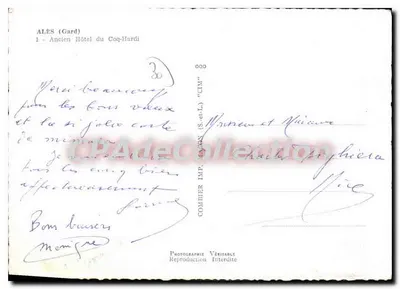 ALES (Gard)
1 - Ancien Hôtel du Coq-Hardi
30
Merci beaucoup
pour les bons vœux
et la si jolie carte
je
tous les cinq bien
affectueusement
Bons baisers
Monique
COMBIER IMP. MACON (S.-et-L.) "CIM"
Monsieur et Madame
Nice
PHOTOGRAPHIE VÉRITABLE
Reproduction Interdite
CPArteCollection